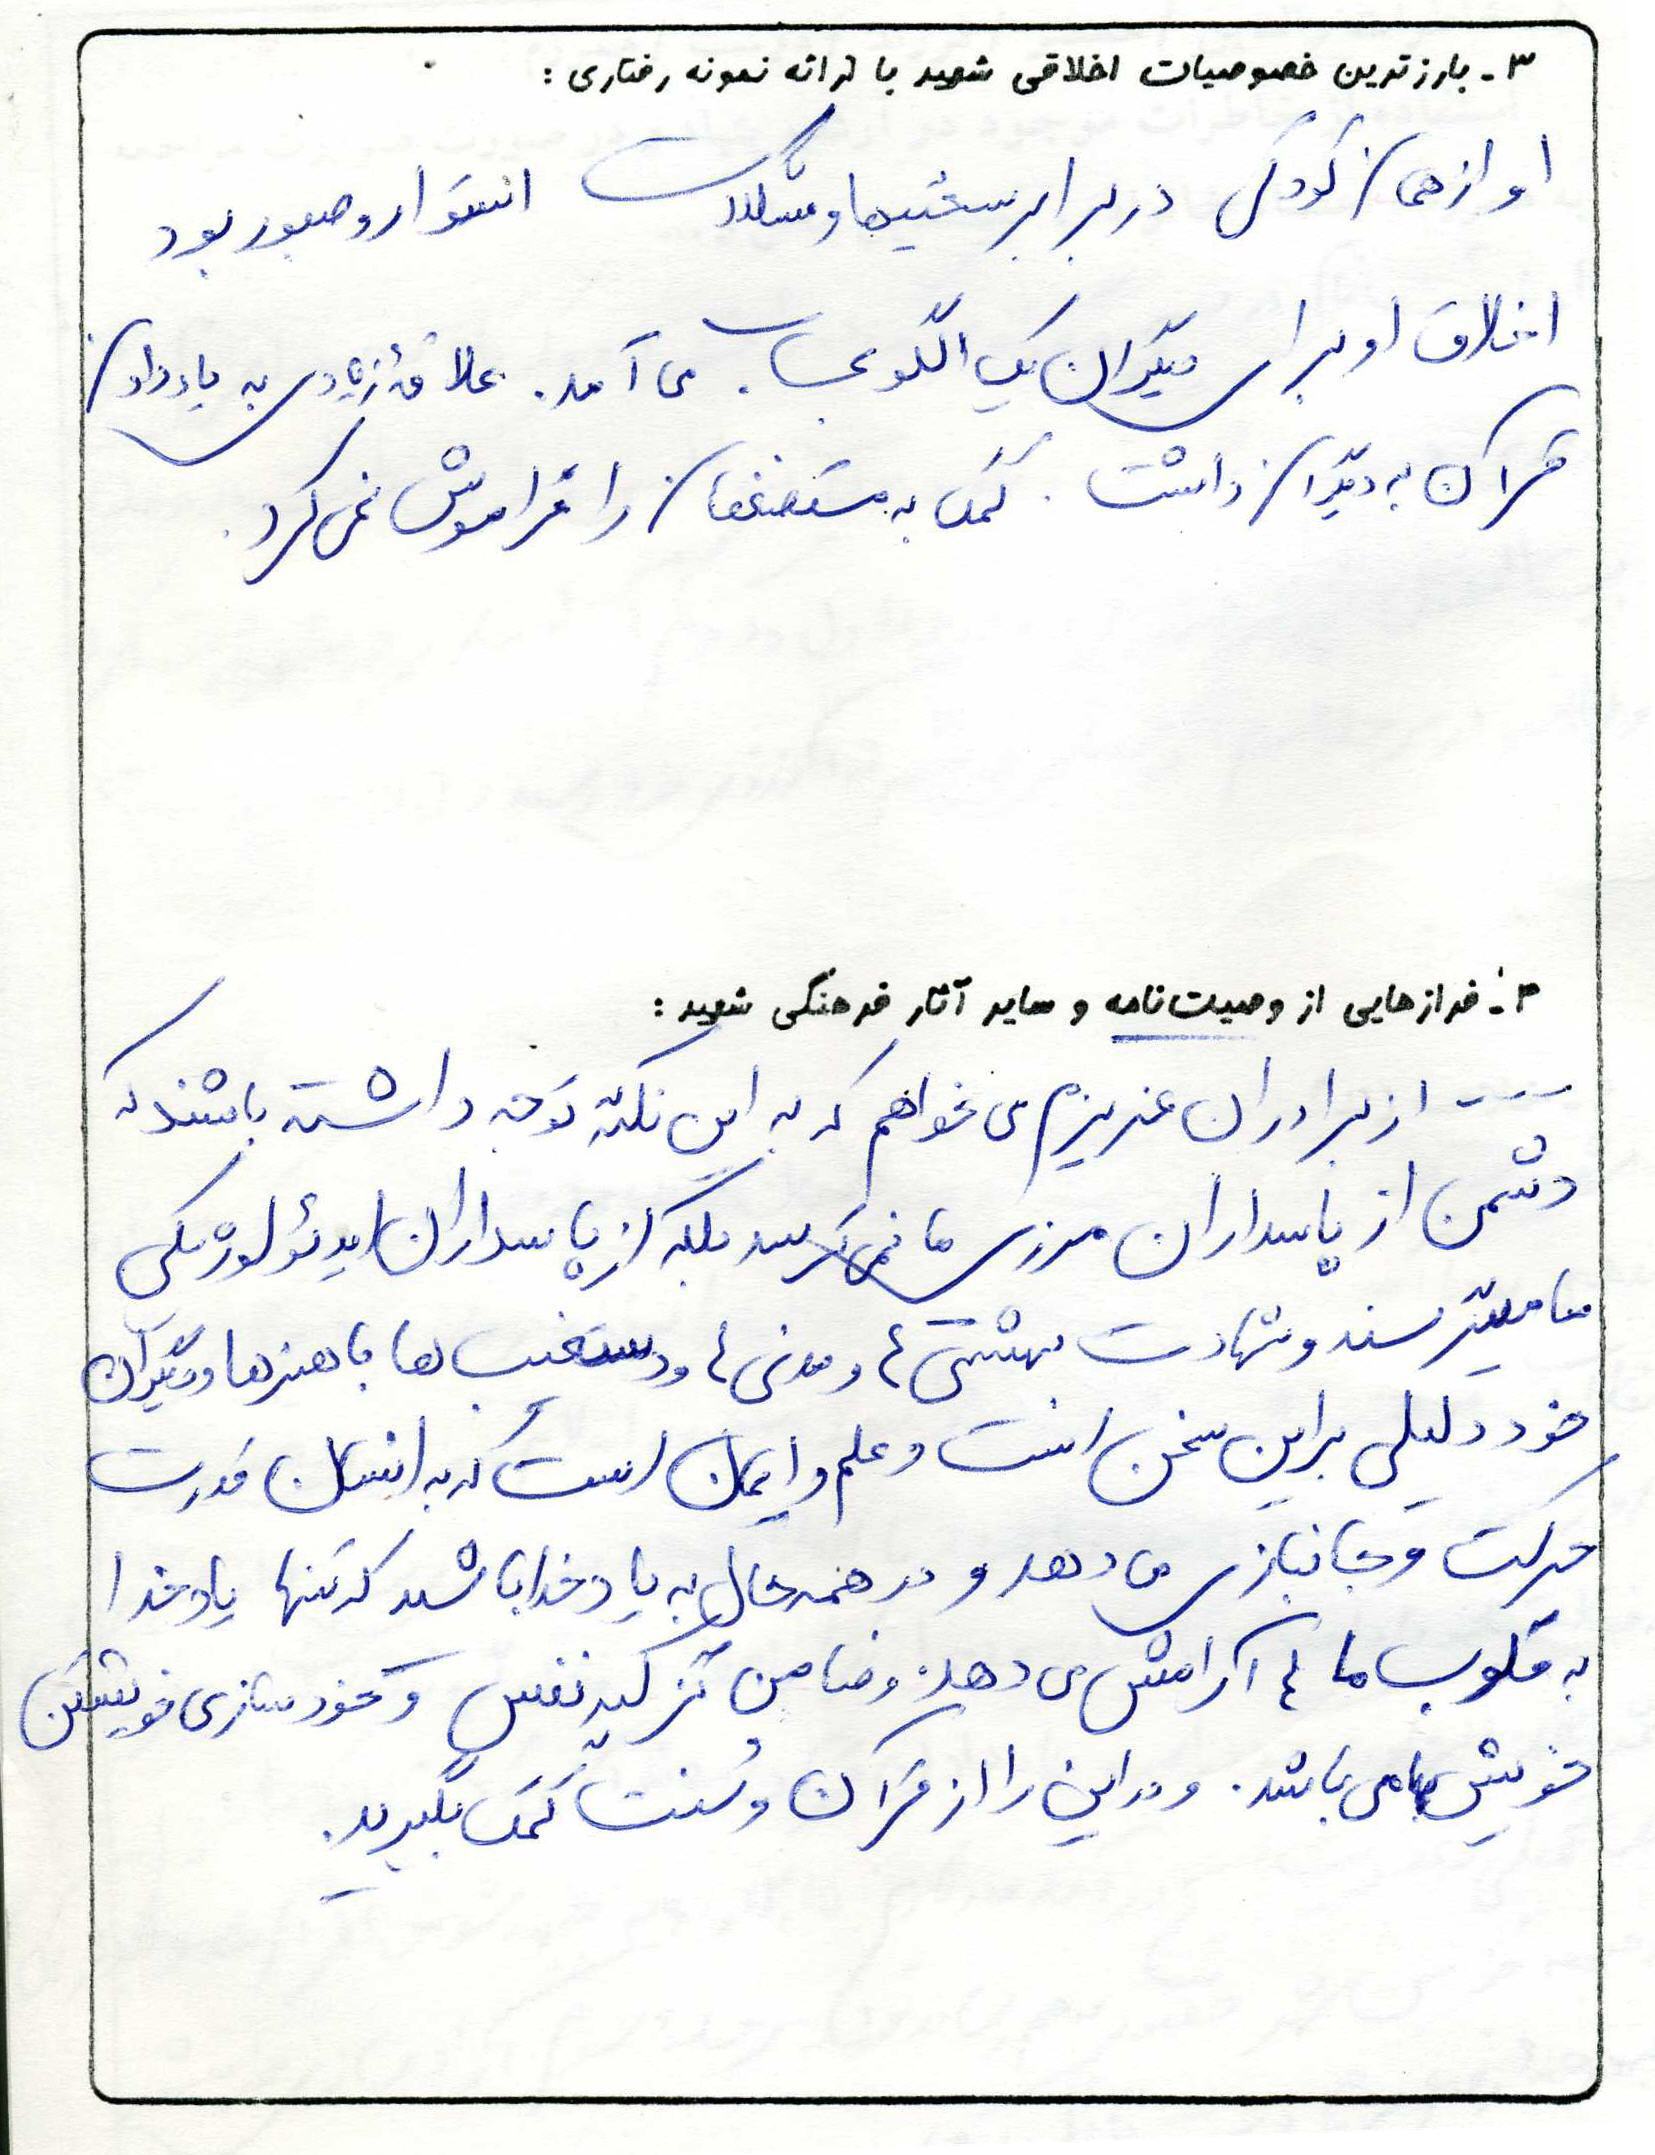 ۳ - بارزترین خصوصیات اخلاقی شهید با ارائه نمونه رفتاری :
او از همان کودکی در برابر سختیها و مشکلات استوار و صبور بود
اخلاق او برای دیگران یک الگو بحساب می آمد. علاقهٔ زیادی به یاد دادن
قرآن به دیگران داشت. کمک به مستضعفان را فراموش نمی کرد.
۴ - فرازهایی از وصیت‌نامه و سایر آثار فرهنگی شهید :
--- از برادران عزیزم می خواهم که به این نکته توجه داشته باشند که
دشمن از پاسداران مرزی ما نمی ترسد بلکه از پاسداران ایدئولوژیکی
ما میترسند و شهادت بهشتی ها و مدنی ها و دستغیب ها باهنرها و دیگران
خود دلیلی بر این سخن است و علم و ایمان است که به انسان قدرت
حرکت و جانبازی می دهد و در همه حال به یاد خدا باشید که تنها یاد خدا
به قلوب ما ها آرامش می دهد. و ضامن تزکیه نفس و خودسازی خویشتن
خویش ما می باشد. و در این را از قرآن و سنت کمک بگیرید.